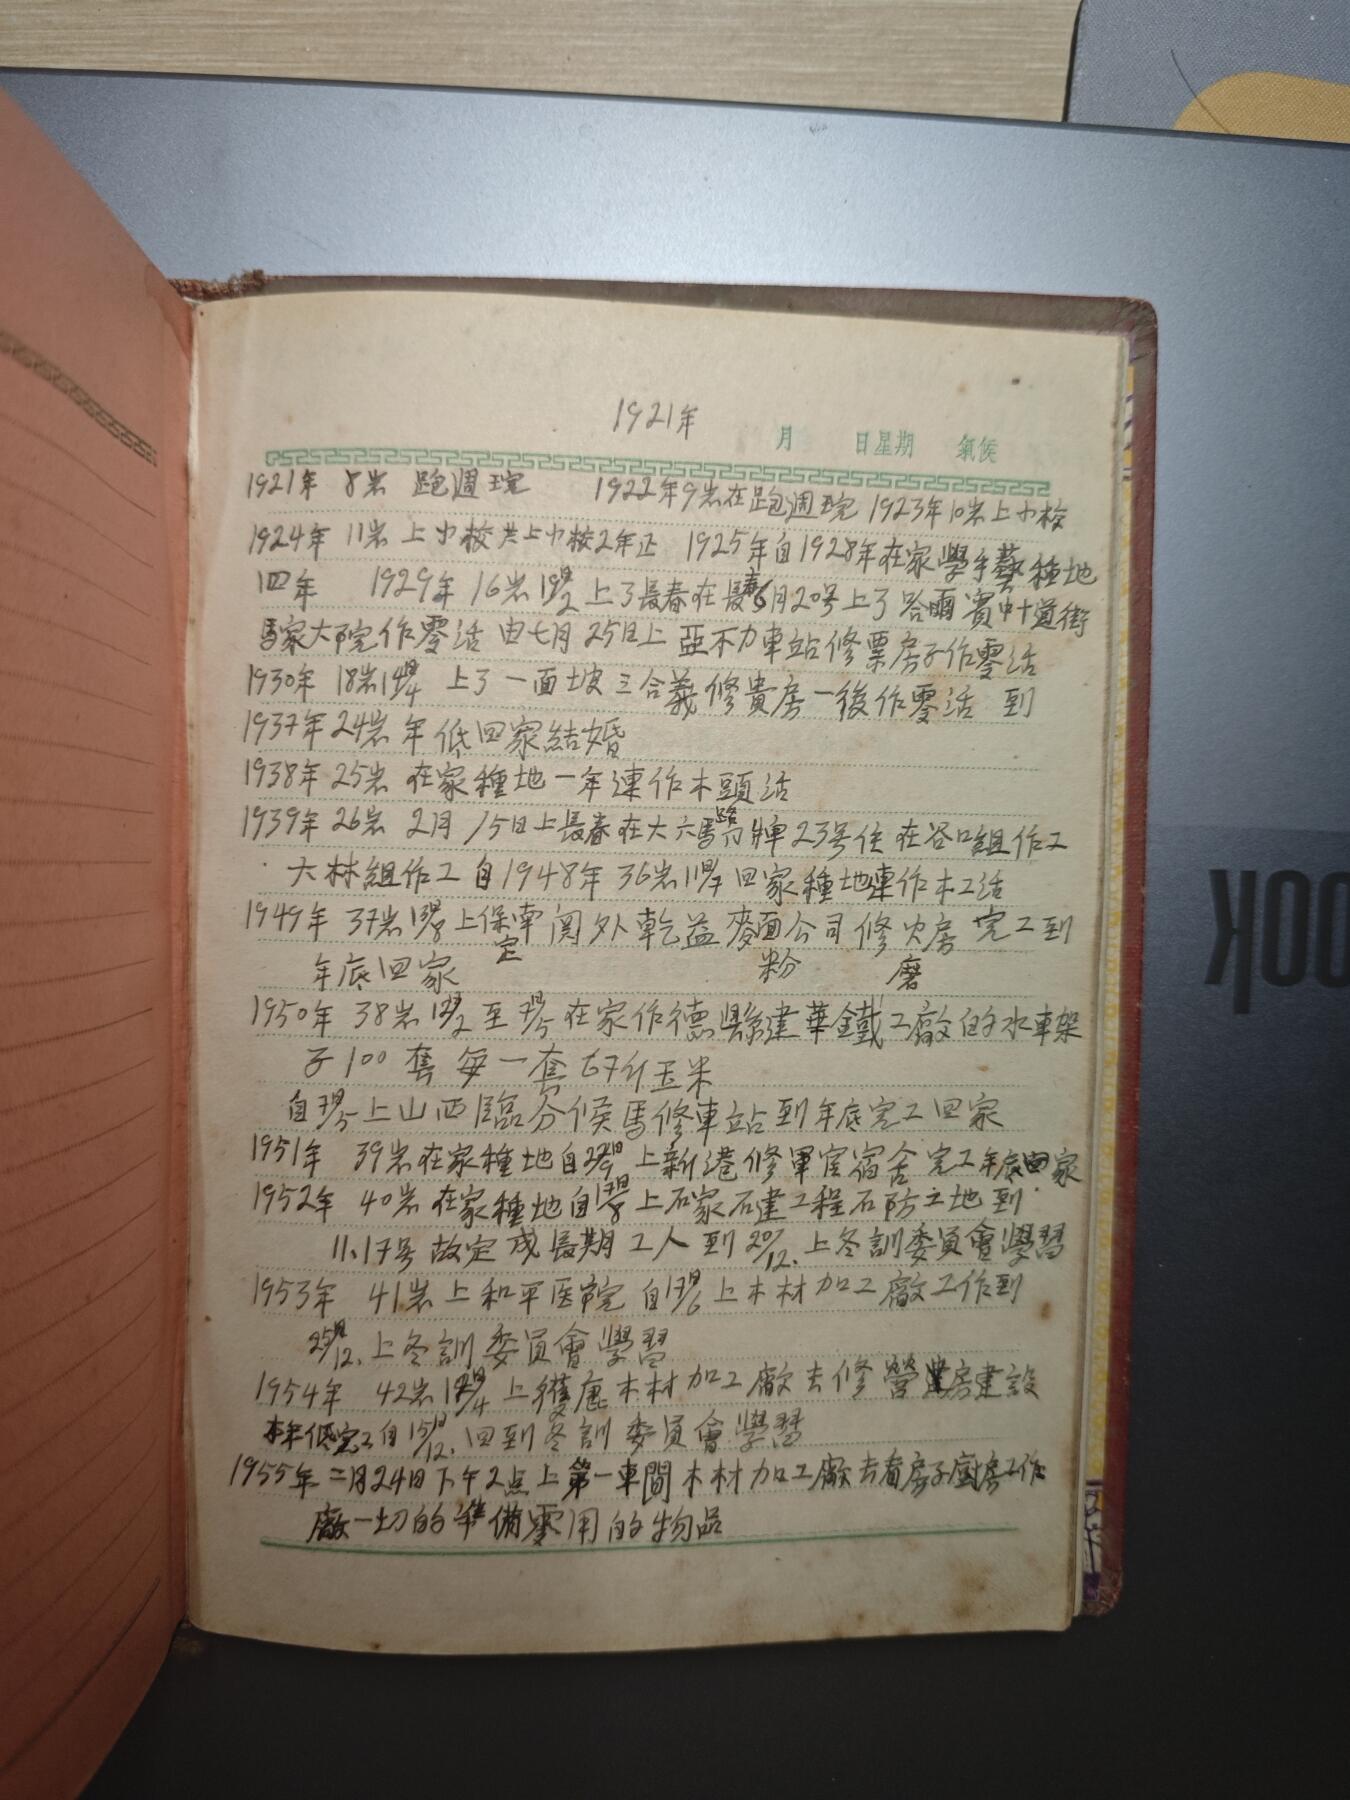 1921年
月 日星期 氣候
1921年 8岩 跑週琓 1922年9岩在跑週琓 1923年10岩上小校
1924年 11岩 上小校共上小校2年正 1925年自1928年在家學手藝種地
四年 1929年 16岩 上了長春在長春6月20号上了哈爾賓中十道街
馬家大院作零活 由七月25日上 亞不力車站修票房子作零活
1930年 18岩 上了一面坡三合義修貴房一後作零活 到
1937年24岩年低回家結婚
1938年25岩 在家種地一年連作木頭活
1939年26岩 2月15日上長春在大六馬路門牌23号住 在谷口組作工
大林組作工自1948年36岩 回家種地連作木工活
1949年 37岩 上保定南関外乾益麥面粉公司修火磨房 完工到
年底回家
1950年 38岩 至 在家作德縣建華鐵工廠的水車架
子100套每一套67斤玉米
自 上山西臨分候馬修車站到年底完工回家
1951年 39岩在家種地自 上新港修軍官宿舍完工年底回家
1952年 40岩在家種地自 上石家石建工程石防之地到
11.17号故定成長期工人到20/12.上冬訓委員會學習
1953年 41岩上和平医院 自 上木材加工廠工作到
25日/12.上冬訓委員會學習
1954年 42岩 上獲鹿木材加工廠去修營 房建設
本年低完工自15日/12.回到冬訓委員會學習
1955年二月24日下午2点上第一車間木材加工廠去看房子 房工作
廠一切的準備零用的物品